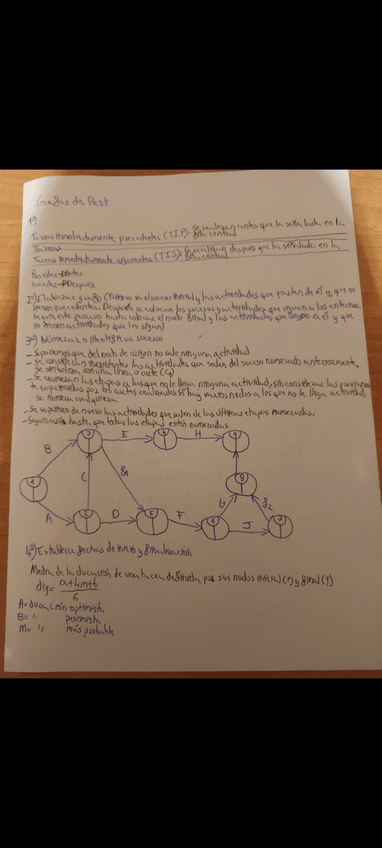 Grafos de Pert
1º)
Tareas inmediatamente precedentes (TIP): Se realizan antes que la señalada en la fila central
Tareas
Tareas inmediatamente siguientes (TIS): Se realizan después que la señalada en la fila central
Antes
Después
2º) Elaborar grafo ( el suceso inicial y las actividades que parten de él y, que no
tienen precedentes. Después se colocan los sucesos y actividades que siguen a los anteriores
seguir este proceso hasta colocar el nodo final y las actividades que llegan a él y que
no tienen actividades que las sigan)
3º) Numerar o identificar sucesos
- Suponemos que del nodo de origen no sale ninguna actividad
- Se consideran inexistentes las actividades que salen del suceso numerado anteriormente,
Se simboliza con una línea o corte
- Se numeran las etapas a las que no le llega ninguna actividad, sin considerar las
suprimidas por los cortes realizados. Si hay varios nodos a los que no le llega actividad,
Se numera cualquiera
- Se suprimen de nuevo las actividades que salen de las últimas etapas numeradas.
- Seguir así hasta que todas las etapas estén numeradas
B
E
H
C
G
A
D
F
G
J
1
2
3
4
5
6
7
8
9
4º) Establecer fechas de inicio y finalización
Media de la duración de una tarea definida por sus nodos inicial (i) y final (j)
dij= a+4m+b
6
A= duración optimista
B= " pesimista
M= " más probable